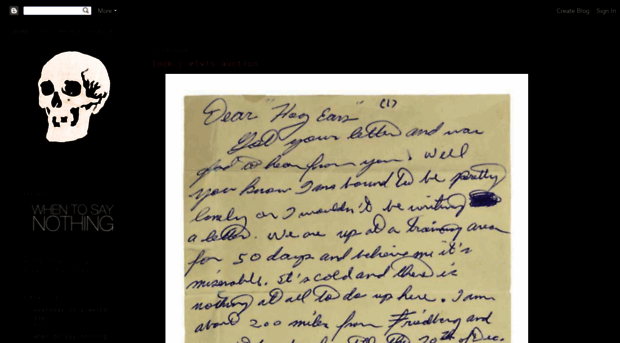 More
Create Blog Sign In
look : elvis auction
WHEN TO SAY
NOTHING
Dear "Hog Ears" (1)
Got your letter and was
glad to hear from you. Well
you know I am bound to be pretty
lonely or I wouldn't be writing
a letter. We are up at a Training area
for 50 days and believe me it's
miserable. It's cold and there is
nothing at all to do up here. I am
about 200 miles from Friedberg and
the 20th of Dec.